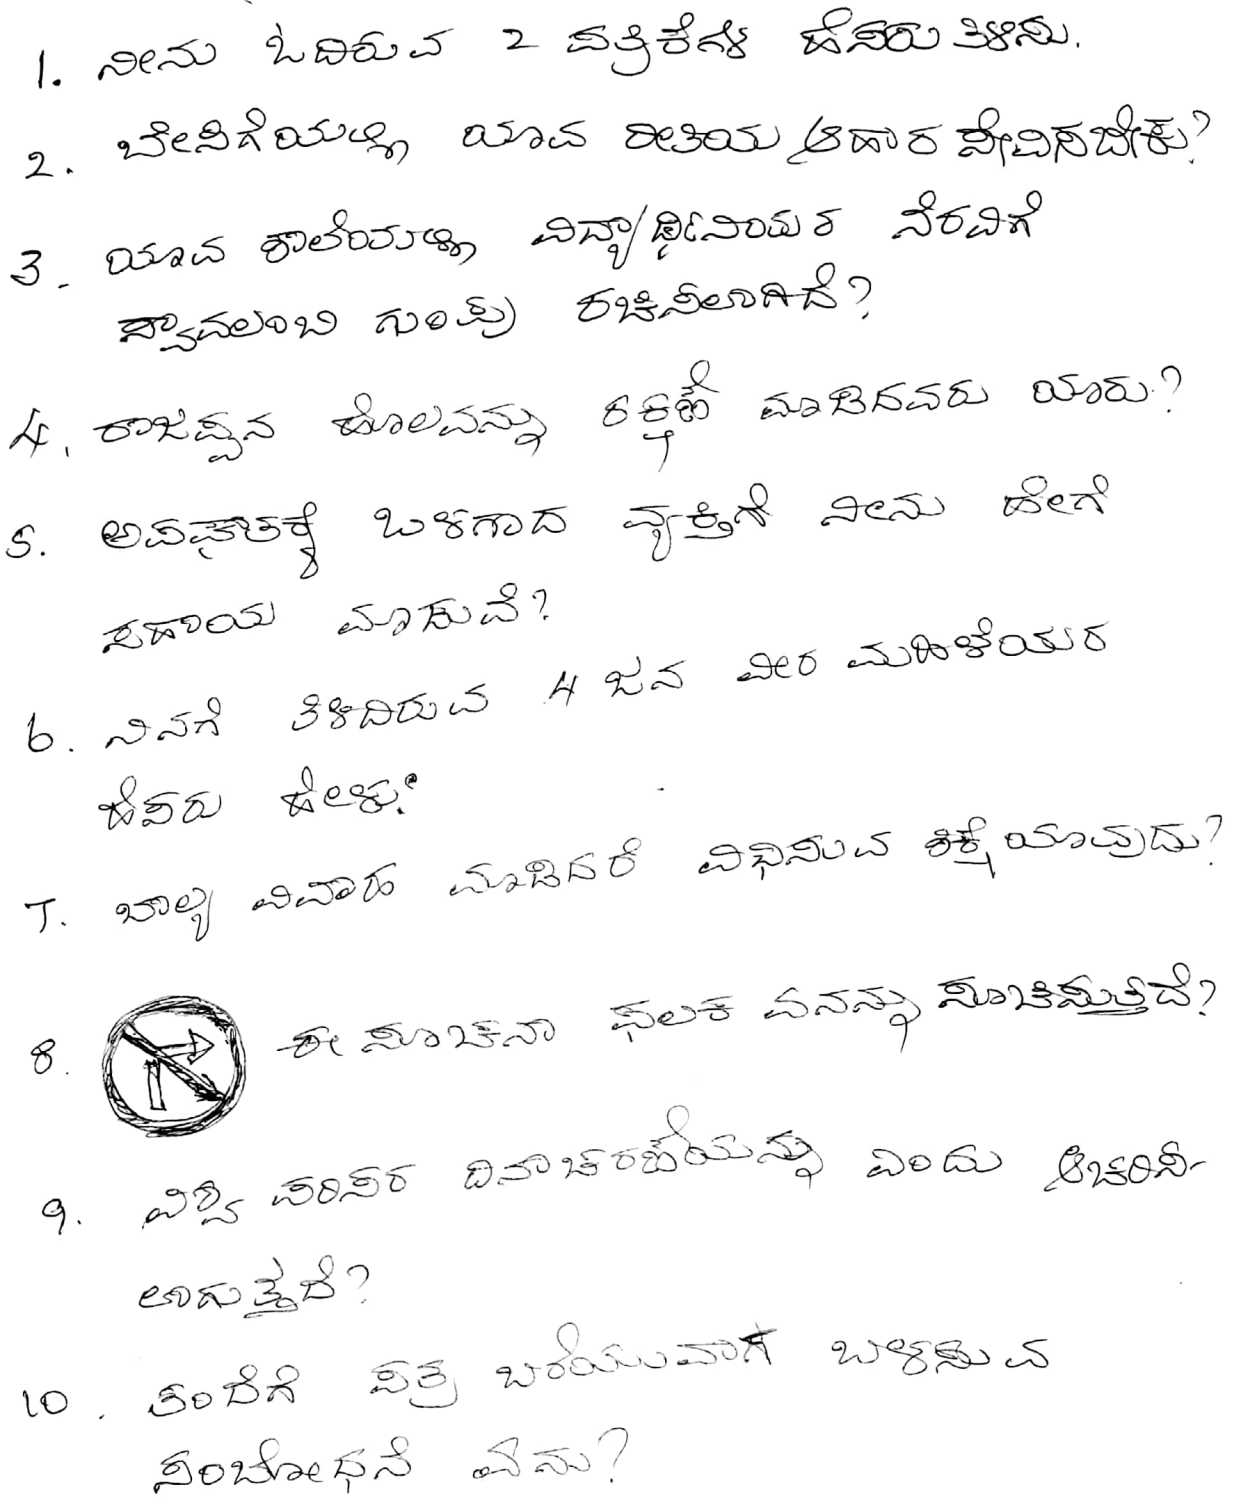 1. ನೀನು ಓದಿರುವ 2 ಪತ್ರಿಕೆಗಳ ಹೆಸರು ತಿಳಿಸು.
2. ಬೇಸಿಗೆಯಲ್ಲಿ ಯಾವ ರೀತಿಯ ಆಹಾರ ಸೇವಿಸಬೇಕು?
3. ಯಾವ ಶಾಲೆಯಲ್ಲಿ ವಿದ್ಯಾರ್ಥಿನಿಯರ ನೆರವಿಗೆ
ಸ್ವಾವಲಂಬಿ ಗುಂಪು ರಚಿಸಲಾಗಿದೆ?
4. ರಾಜಪ್ಪನ ಹೊಲವನ್ನು ರಕ್ಷಣೆ ಮಾಡಿದವರು ಯಾರು?
5. ಅಪಘಾತಕ್ಕೆ ಒಳಗಾದ ವ್ಯಕ್ತಿಗೆ ನೀನು ಹೇಗೆ
ಸಹಾಯ ಮಾಡುವೆ?
6. ನಿನಗೆ ತಿಳಿದಿರುವ 4 ಜನ ವೀರ ಮಹಿಳೆಯರ
ಹೆಸರು ಹೇಳು?
7. ಬಾಲ್ಯ ವಿವಾಹ ಮಾಡಿದರೆ ವಿಧಿಸುವ ಶಿಕ್ಷೆ ಯಾವುದು?
8. ಈ ಸೂಚನಾ ಫಲಕ ಏನನ್ನು ಸೂಚಿಸುತ್ತದೆ?
9. ವಿಶ್ವ ಪರಿಸರ ದಿನಾಚರಣೆಯನ್ನು ಎಂದು ಆಚರಿಸ-
ಲಾಗುತ್ತದೆ?
10. ತಂದೆಗೆ ಪತ್ರ ಬರೆಯುವಾಗ ಬಳಸುವ
ಸಂಬೋಧನೆ ಏನು?